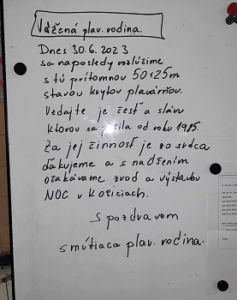 Vážená plav. rodina.
Dnes 30.6.2023
sa naposledy rozlúčime
s tú prítomnou 50x25m
starou krytov plavárňov.
Vzdajte je česť a slávu
ktorov sa pýšila od roku 1985.
Za jej činnosť je zo srdca
ďakujeme a s nadšením
očakávame zvod a výstavbu
NOC v Košiciach.
S pozdravom
smútiaca plav. rodina.